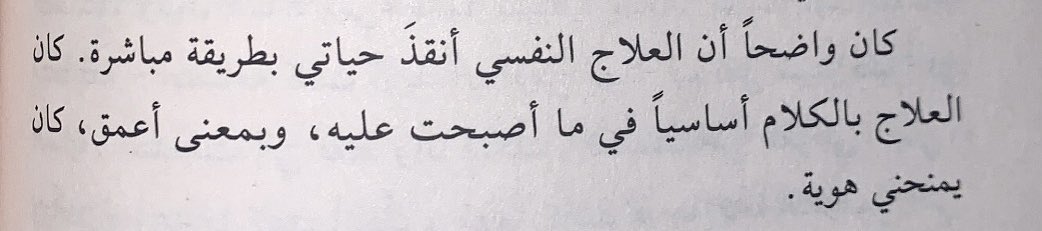 كان واضحاً أن العلاج النفسي أنقذَ حياتي بطريقة مباشرة. كان
العلاج بالكلام أساسياً في ما أصبحت عليه، وبمعنى أعمق، كان
يمنحني هوية.